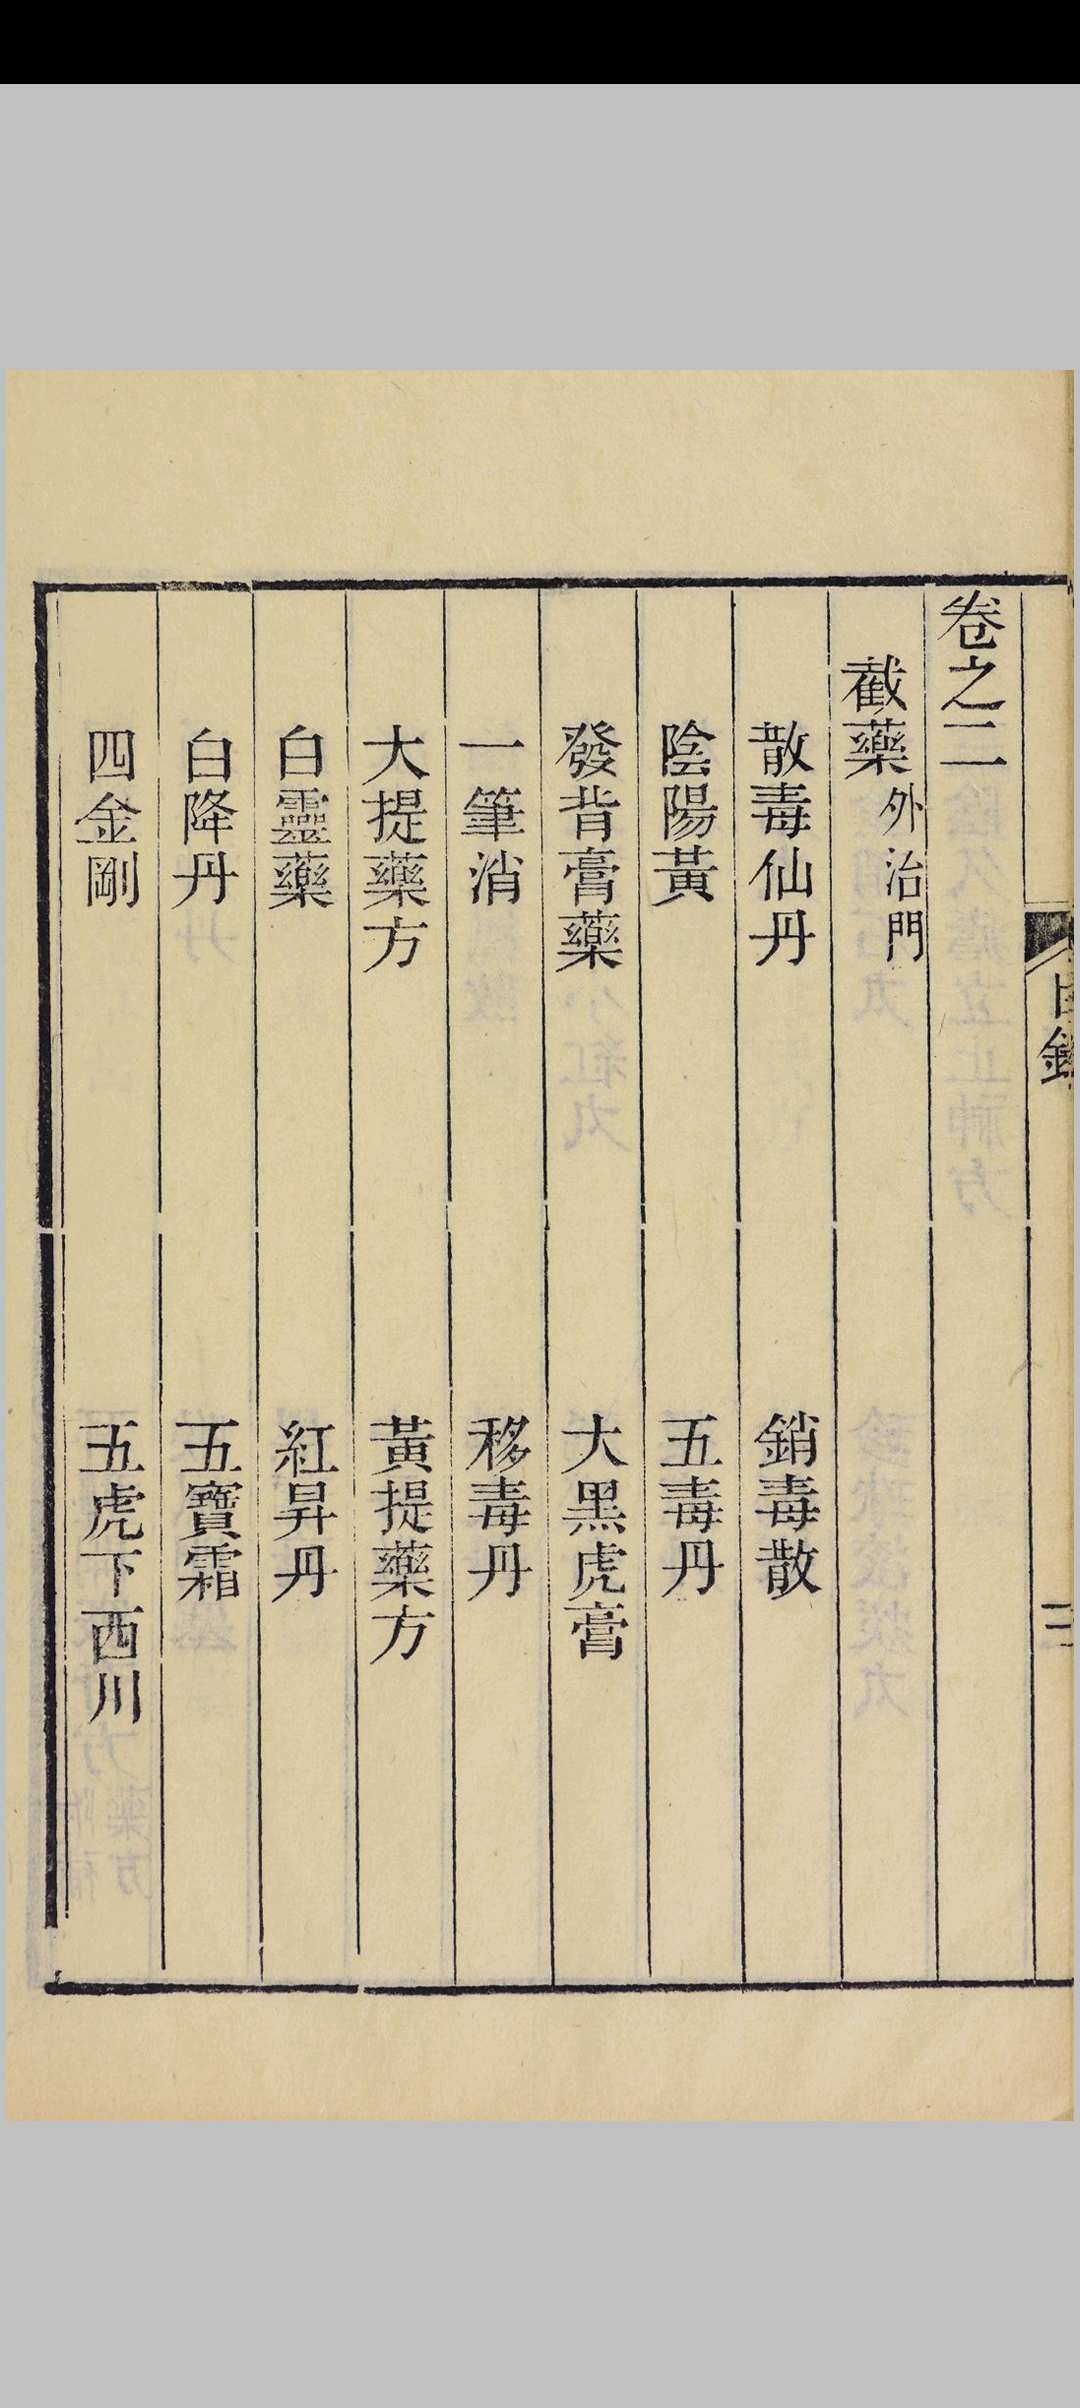 卷之二
截藥外治門
散毒仙丹 銷毒散
陰陽黃 五毒丹
發背膏藥 大黑虎膏
一筆消 移毒丹
大提藥方 黃提藥方
白靈藥 紅昇丹
白降丹 五寶霜
四金剛 五虎下西川